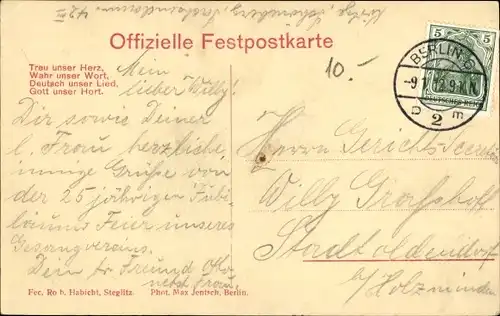 Offizielle Festpostkarte
Treu unser Herz,
Wahr unser Wort,
Deutsch unser Lied,
Gott unser Hort.
10.-
5 5
DEUTSCHES REICH
BERLIN C
2
Mein
lieber Willy!
Dir sowie Deiner
l. Frau herzliche
innige Grüße von
der 25 jährigen Jubi-
läums Feier unseres
Gesangvereins.
Dein tr Freund Otto
nebst Frau.
Herrn Gerichts
Willy Grafshof
Stadtoldendorf
b/ Holzminden
Fec. Rob. Habicht, Steglitz. Phot. Max Jentsch, Berlin.